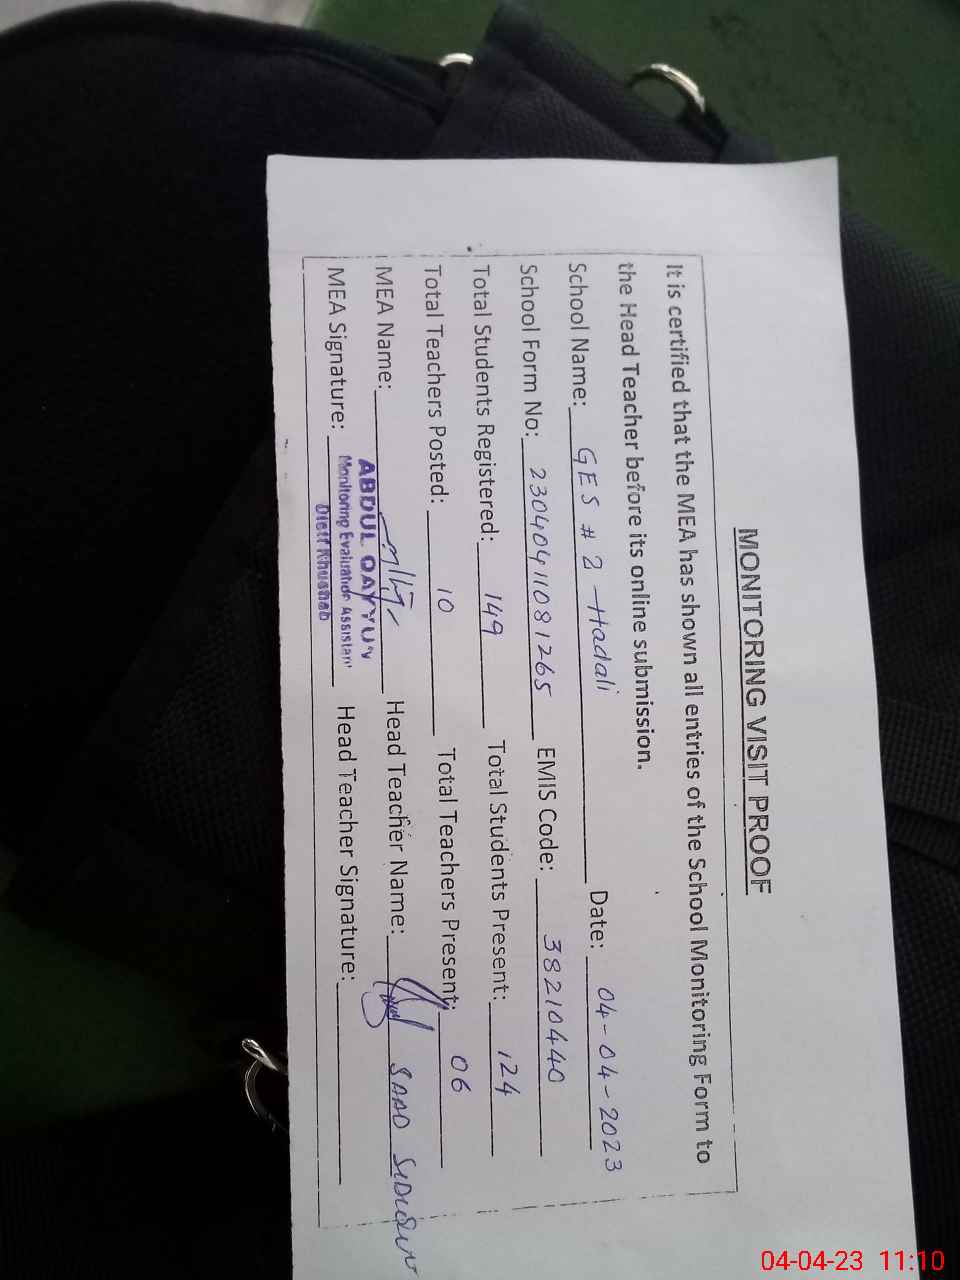 MONITORING VISIT PROOF
It is certified that the MEA has shown all entries of the School Monitoring Form to
the Head Teacher before its online submission.
School Name: GES # 2 Hadali Date: 04-04-2023
School Form No: 2304041081265 EMIS Code: 38210440
Total Students Registered: 149 Total Students Present: 124
Total Teachers Posted: 10 Total Teachers Present: 06
MEA Name: Head Teacher Name: SAAD
MEA Signature: Head Teacher Signature:
ABDUL QAYYUM
Monitoring Evaluation Assistant
Distt Khushab
04-04-23 11:10